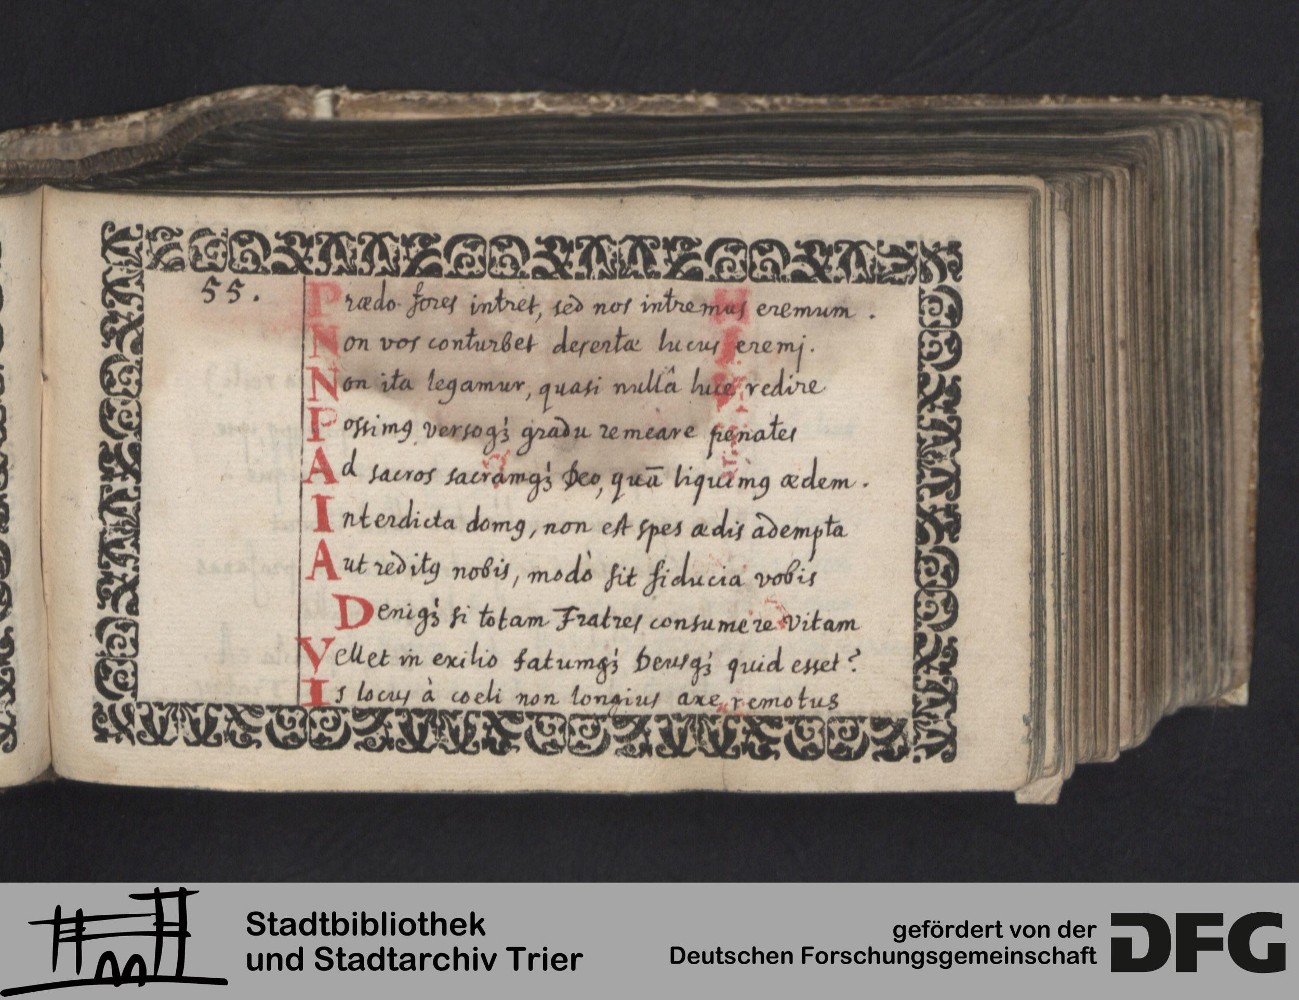 55.
Prædo fores intret, sed nos intremus eremum.
Non vos conturbet deserta lucus eremj.
Non ita legamur, quasi nullâ luce redire
Possimꝯ versoqꝫ gradu remeare penates
Ad sacros sacramqꝫ Deo, quā liquimꝯ ædem.
Interdicta domꝯ, non est spes ædis adempta
Aut reditꝯ nobis, modò sit fiducia vobis
Deniqꝫ si totam Fratres consumere vitam
Vellet in exilio fatumqꝫ Deusqꝫ quid esset?
Is locus à coeli non longius axe remotus
Stadtbibliothek
und Stadtarchiv Trier
gefördert von der
Deutschen Forschungsgemeinschaft
DFG